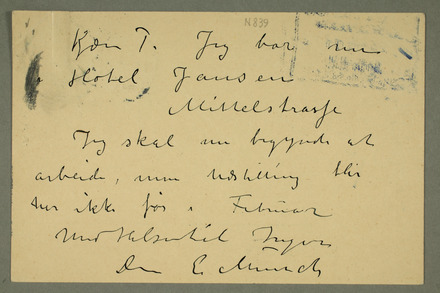 N 839
Kjære T. Jeg bor nu
i Hôtel Jansen
Mittelstrasse
Jeg skal nu begynde at
arbeide, men Udstilling blir
her ikke før i Februar
Med Hilsen til Inger
Din E Munch